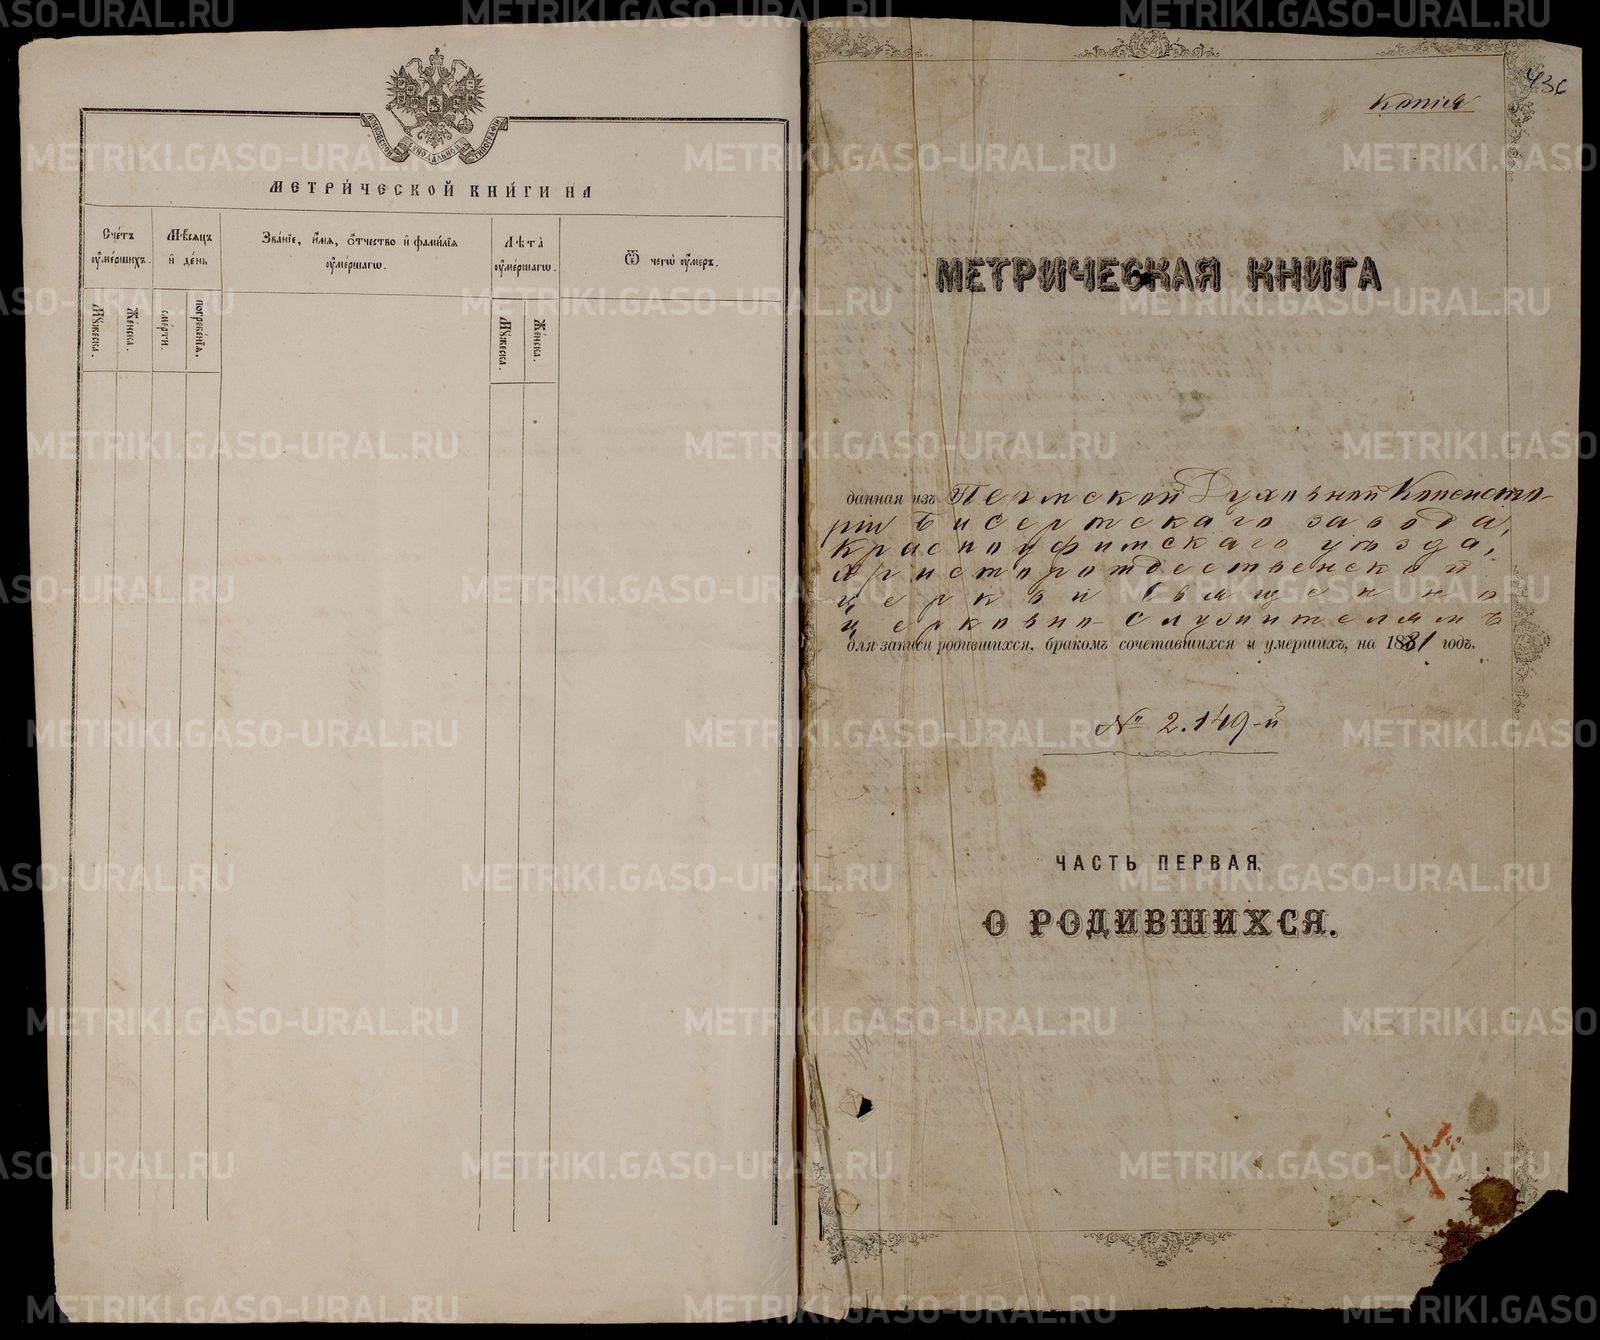 МОСКОВСКОЙ СѴНОДАЛЬНОЙ ТИПОГРАФІИ
МЕТРИ́ЧЕСКОЙ КНИ́ГИ НА
Сче́тъ ᲂу҆ме́ршихъ.
Мѣ́сѧцъ и҆ де́нь
Зва́нїе, и҆́мѧ, ѻ҆́тчество и҆ фами́лїѧ ᲂу҆ме́ршагѡ.
Лѣ́та ᲂу҆ме́ршагѡ.
Ѿ чегѡ̀ ᲂу҆́меръ.
Мꙋ́жеска.
Же́нска.
сме́рти.
погребе́нїѧ.
Мꙋ́жеска.
Же́нска.
436
Копія
МЕТРИЧЕСКАЯ КНИГА
данная изъ Пермской Духовной Консисто-
ріи Бисертскаго завода,
Красноуфимскаго уѣзда,
Христорождественской
церкви Священно
церковно-служителямъ
для записи родившихся, бракомъ сочетавшихся и умершихъ, на 1881 годъ.
№ 2.149-й
ЧАСТЬ ПЕРВАЯ,
О РОДИВШИХСЯ.
METRIKI.GASO-URAL.RU